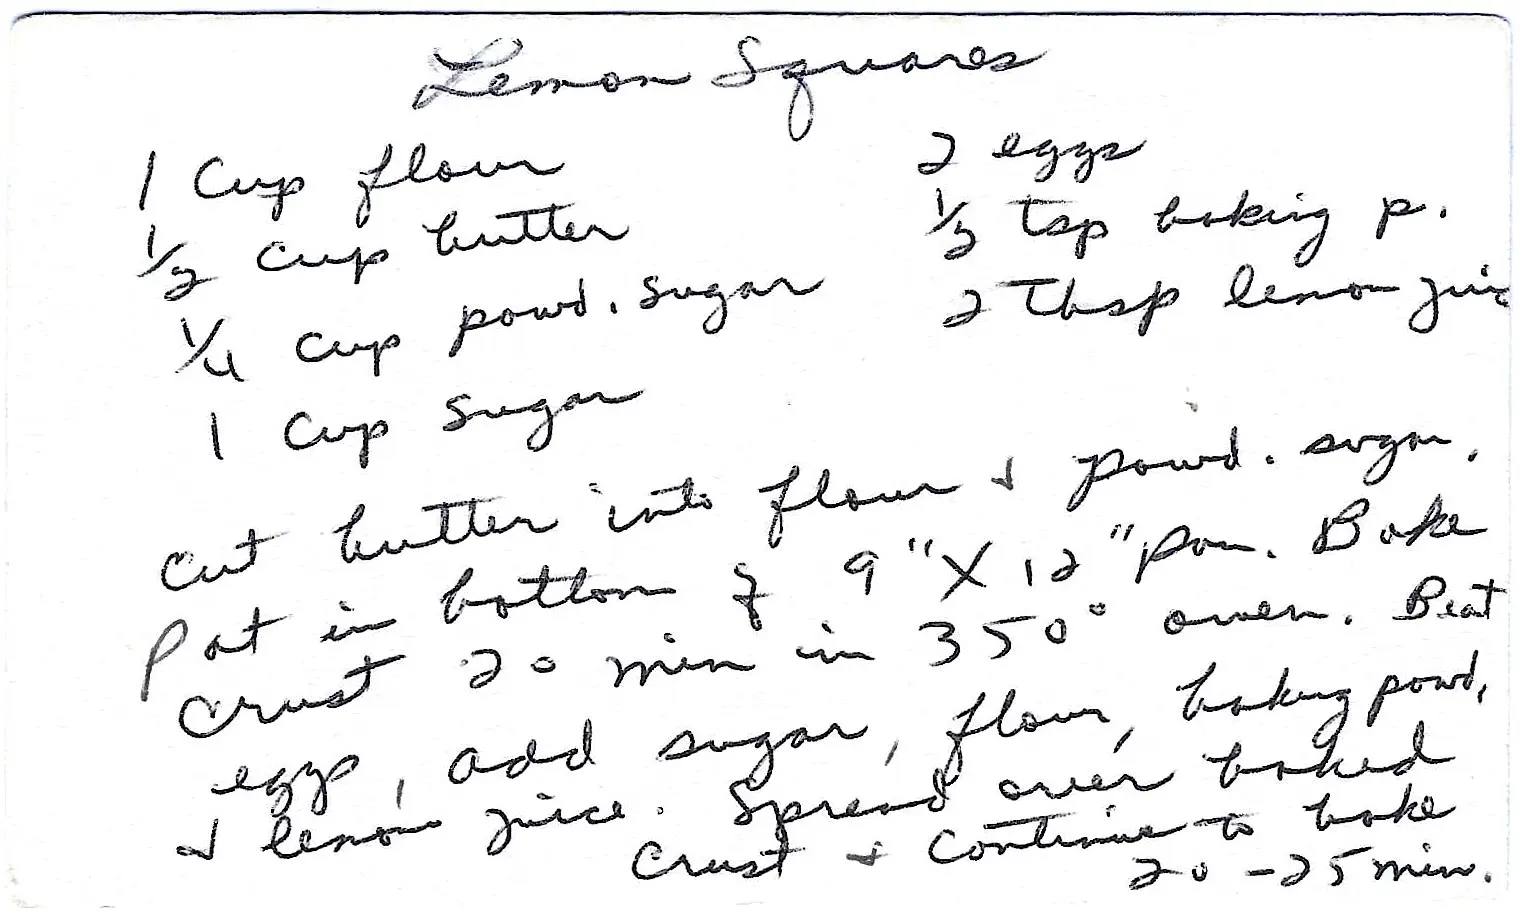 Lemon Squares
1 Cup flour
1/2 cup butter
1/4 cup powd. sugar
1 Cup sugar
2 eggs
1/2 tsp baking p.
2 Tbsp lemon juic
Cut butter into flour & powd. sugar.
Pat in bottom of 9" X 12" pan. Bake
crust 20 min in 350° oven. Beat
eggs, add sugar, flour, baking powd,
& lemon juice. Spread over baked
crust & continue to bake
20-25 min.